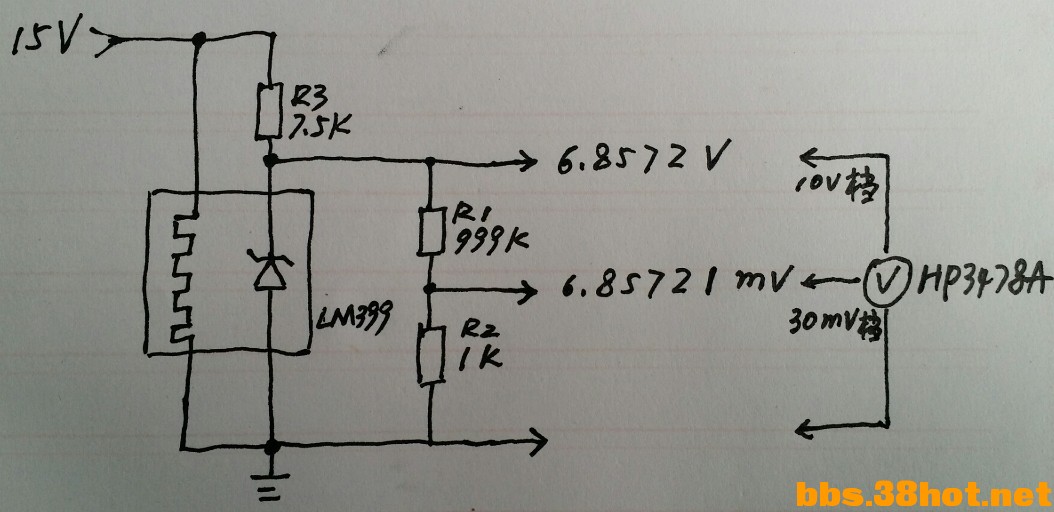 15V
R3
7.5K
6.8572V
10V档
R1
999K
6.85721mV
V
HP3478A
30mV档
LM399
R2
1K
bbs.38hot.net